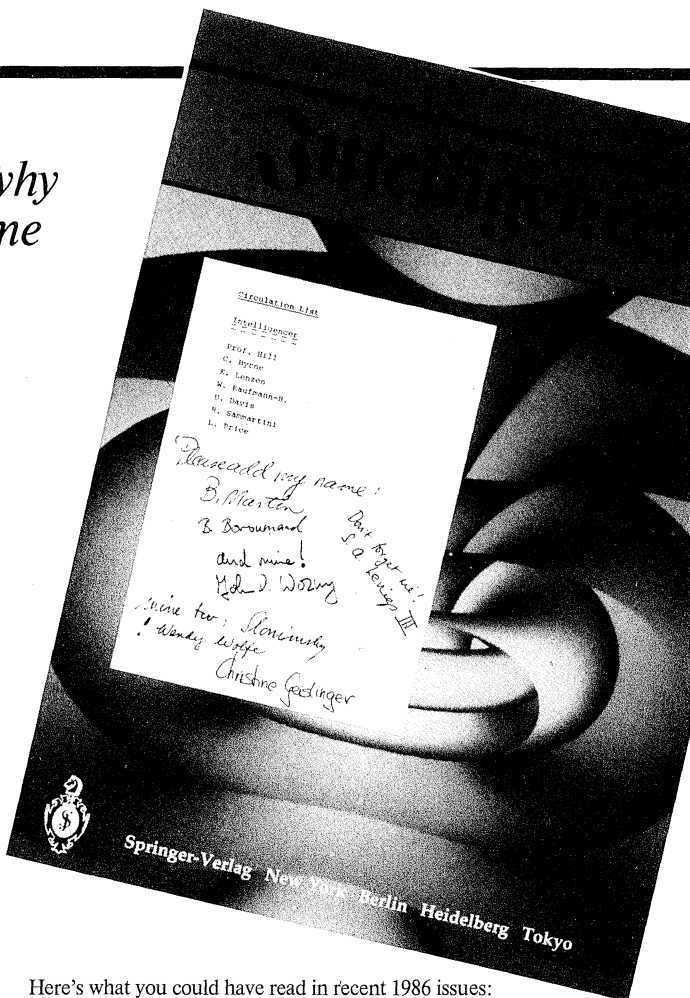 why
me
Intelligencer
Circulation List
Intelligencer
Prof. Hill
C. Byrne
E. Lenzen
W. Kaufmann-B.
U. Davis
R. Sammartini
L. Price
Please add my name!
B. Martin
B. Boroumand
and mine!
John D.
Don't forget me!
S. A. III
mine too; Slonimsky
! Wendy Wolfe
Christine Geislinger
Springer-Verlag New York Berlin Heidelberg Tokyo
Here's what you could have read in recent 1986 issues: